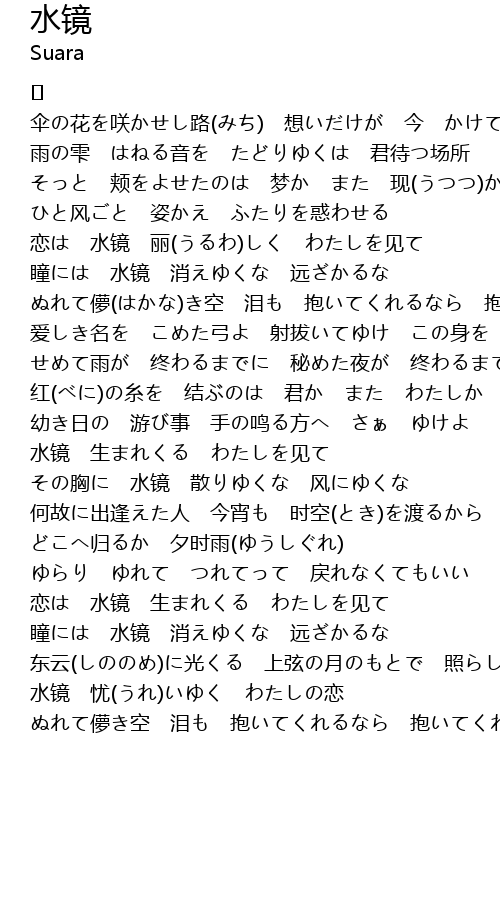 水镜
Suara
伞の花を咲かせし路(みち)　想いだけが　今　かけて
雨の雫　はねる音を　たどりゆくは　君待つ场所
そっと　颊をよせたのは　梦か　また　现(うつつ)か
ひと风ごと　姿かえ　ふたりを惑わせる
恋は　水镜　丽(うるわ)しく　わたしを见て
瞳には　水镜　消えゆくな　远ざかるな
ぬれて儚(はかな)き空　泪も　抱いてくれるなら　抱
爱しき名を　こめた弓よ　射拔いてゆけ　この身を
せめて雨が　终わるまでに　秘めた夜が　终わるまで
红(べに)の糸を　结ぶのは　君か　また　わたしか
幼き日の　游び事　手の鸣る方へ　さぁ　ゆけよ
水镜　生まれくる　わたしを见て
その胸に　水镜　散りゆくな　风にゆくな
何故に出逢えた人　今宵も　时空(とき)を渡るから
どこへ归るか　夕时雨(ゆうしぐれ)
ゆらり　ゆれて　つれてって　戻れなくてもいい
恋は　水镜　生まれくる　わたしを见て
瞳には　水镜　消えゆくな　远ざかるな
东云(しののめ)に光くる　上弦の月のもとで　照らし
水镜　忧(うれ)いゆく　わたしの恋
ぬれて儚き空　泪も　抱いてくれるなら　抱いてくれ